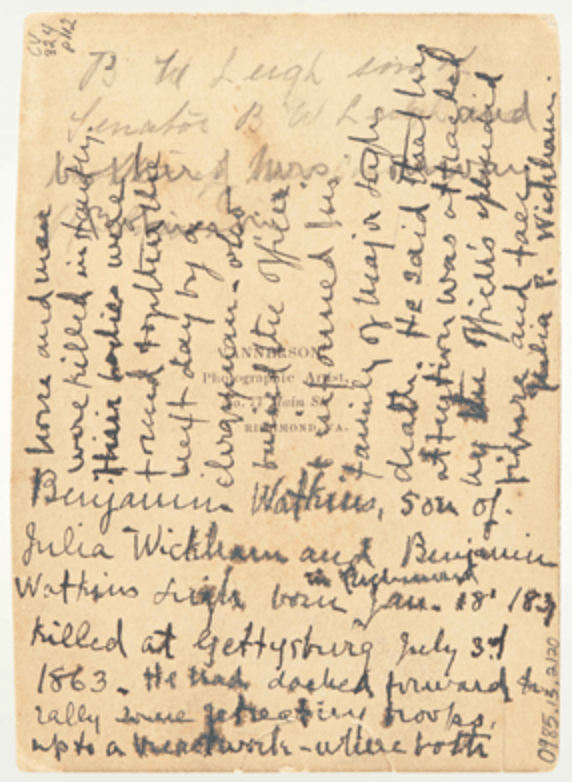 CV
824
p112
B W Leigh son of
Senator B W Leigh and
brother of Mrs. Conway
VANNERSON,
Photographic Artist,
No. 77 Main St
RICHMOND, VA.
Benjamin Watkins, son of
Julia Wickham and Benjamin
Watkins Leigh born in Richmond Jan. 18th 183
killed at Gettysburg July 3rd
1863. He had dashed forward to
rally some retreating troops,
up to a breastwork - where both
horse and man
were killed instantly.
Their bodies were
found together the
next day by a
clergyman - who
buried the officer.
informed his
family of Major Leigh
death. He said that his
attention was attracted
by the officer's splendid
figure and face
Julia P. Wickham.
0985.13.2120